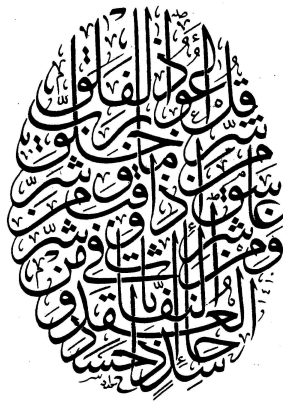 قُلْ أَعُوذُ بِرَبِّ الْفَلَقِ
مِنْ شَرِّ مَا خَلَقَ
وَمِنْ شَرِّ غَاسِقٍ إِذَا وَقَبَ
وَمِنْ شَرِّ النَّفَّاثَاتِ فِي الْعُقَدِ
وَمِنْ شَرِّ حَاسِدٍ إِذَا حَسَدَ